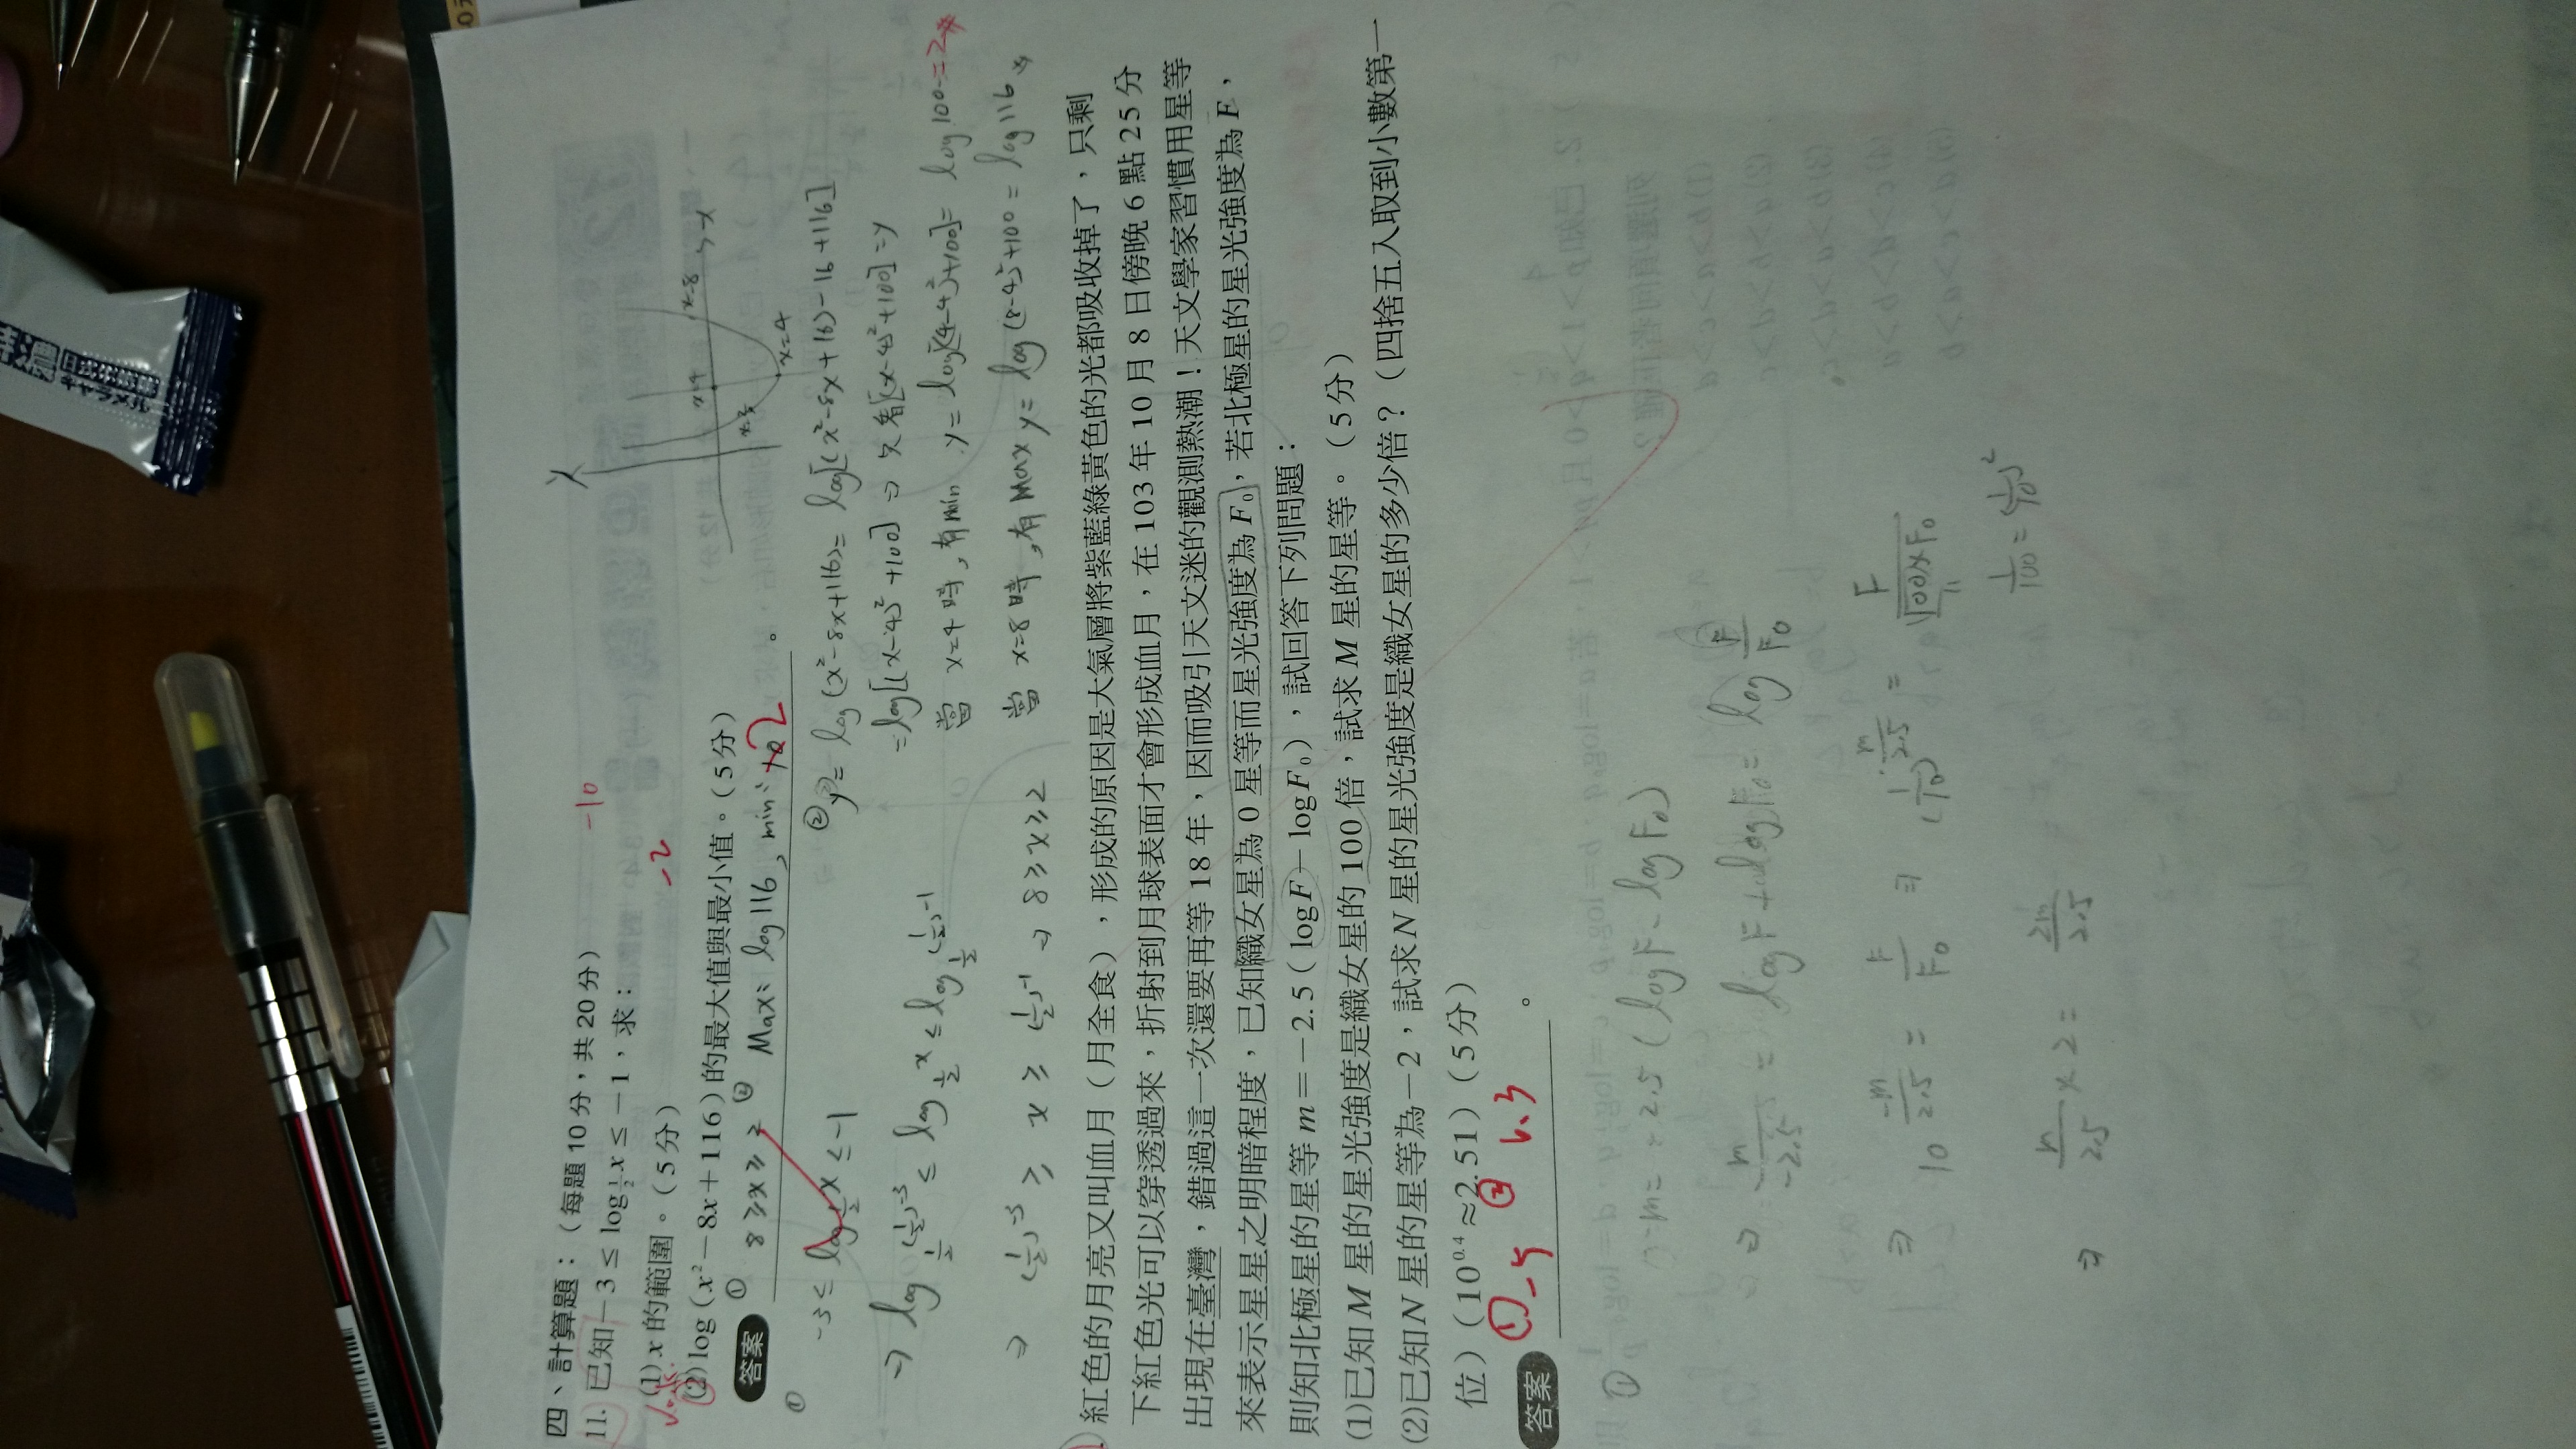 四、計算題：（每題 10 分，共 20 分） -10
11. 已知 -3 ≤ log½ x ≤ -1，求： -2
(1) x 的範圍。（5 分）
(2) log（x²-8x+116）的最大值與最小值。（5 分）
答案 ① 8≥x≥2 ② Max: log116, min: 2 。
① -3≤ log½ x ≤-1
⇒ log½ (½)⁻³ ≤ log½ x ≤ log½ (½)⁻¹
⇒ (½)⁻³ ≥ x ≥ (½)⁻¹ ⇒ 8≥x≥2
② y= log(x²-8x+116)= log[(x²-8x+16)-16+116]
=log[(x-4)²+100] ⇒ 只看[(x-4)²+100]=y
當 x=4時,有min y= log[(4-4)²+100]= log100=2
當 x=8時,有Max y= log(8-4)²+100 = log116
Y
x=8
x=4
紅色的月亮又叫血月（月全食），形成的原因是大氣層將紫藍綠黃色的光都吸收掉了，只剩
下紅色光可以穿透過來，折射到月球表面才會形成血月，在 103 年 10 月 8 日傍晚 6 點 25 分
出現在臺灣，錯過這一次還要再等 18 年，因而吸引天文迷的觀測熱潮！天文學家習慣用星等
來表示星星之明暗程度，已知織女星為 0 星等而星光強度為 F₀，若北極星的星光強度為 F，
則知北極星的星等 m=-2.5（logF-logF₀），試回答下列問題：
(1)已知 M 星的星光強度是織女星的 100 倍，試求 M 星的星等。（5 分）
(2)已知 N 星的星等為 -2，試求 N 星的星光強度是織女星的多少倍？（四捨五入取到小數第一
位）（10^0.4≈2.51）（5 分）
答案 ① -5 ② 6.3 。
① m= -2.5 (logF - logF₀)
⇒ m/-2.5 = = log F/F₀
⇒ 10^(-m/2.5) = F/F₀ ⇒ (1/10)^(m/2.5) = F/100×F₀
1/100 = (1/10)²
⇒ m/2.5 × 2 = 2m/2.5